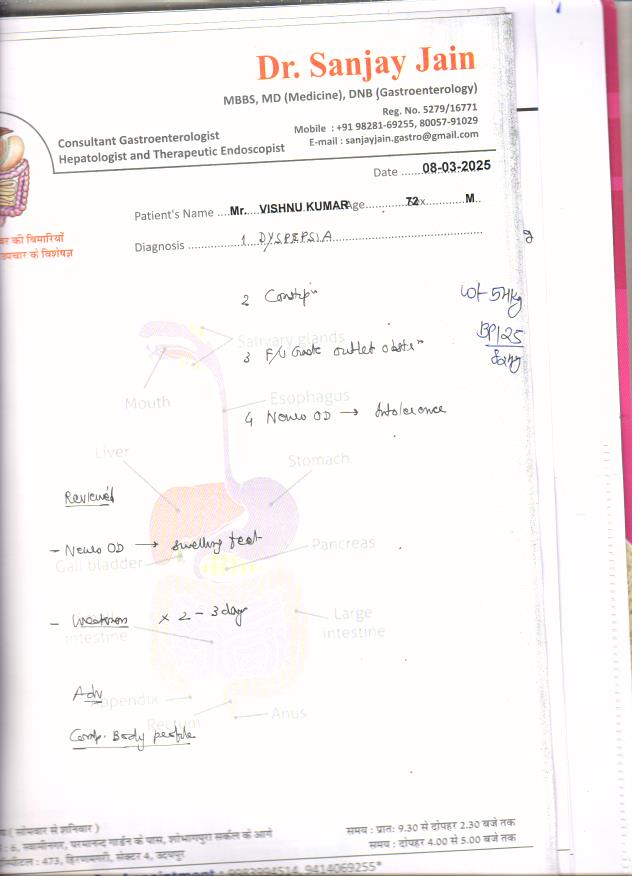 Dr. Sanjay Jain
MBBS, MD (Medicine), DNB (Gastroenterology)
Reg. No. 5279/16771
Consultant Gastroenterologist
Mobile : +91 98281-69255, 80057-91029
Hepatologist and Therapeutic Endoscopist
E-mail : sanjayjain.gastro@gmail.com
Date ...... 08-03-2025
Patient's Name .... Mr. VISHNU KUMAR Age ............ 72 Sex ........ M..
की बिमारियों
उपचार के विशेषज्ञ
Diagnosis ............ 1 DYSPEPSIA ............
2 Constipn
Wt 54kg
Salivary glands
BP 125
3 F/U outlet obstn
Mouth
Esophagus
4 Neuro OD → Intolerance
Liver
Stomach
Reviewed
- Neuro OD → swelling feet
Pancreas
Gall bladder
- x 2 - 3 days
Large
intestine
intestine
Adv
Appendix
Rectum
Anus
Comp. Body profile
( सोमवार से शनिवार )
समय : प्रातः 9.30 से दोपहर 2.30 बजे तक
: 6, स्वामीनगर, परमानन्द गार्डन के पास, शोभागपुरा सर्कल के आगे
समय : दोपहर 4.00 से 5.00 बजे तक
: 473, हिरणमगरी, सेक्टर 4, उदयपुर
: 9983994514, 9414069255*